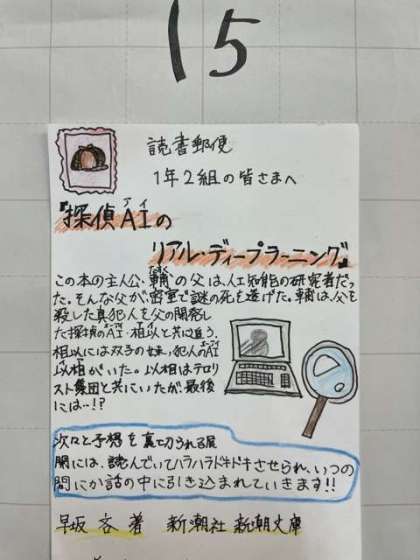 15
読書郵便
1年2組の皆さまへ
『探偵AIの
アイ
リアル・ディープラーニング』
この本の主人公・輔の父は、人工知能の研究者だっ
たすく
た。そんな父が、密室で謎の死を遂げた。輔は、父を
殺した真犯人を父の開発し
た探偵のAI・相以と共に追う。
相以には双子の妹、犯人のAI
以相がいた。以相はテロリ
スト集団と共にいたが、最後
には…!?
次々と予想を裏切られる展
開には、読んでいてハラハラドキドキさせられ、いつの
間にか話の中に引き込まれていきます!!
早坂 吝 著 新潮社 新潮文庫